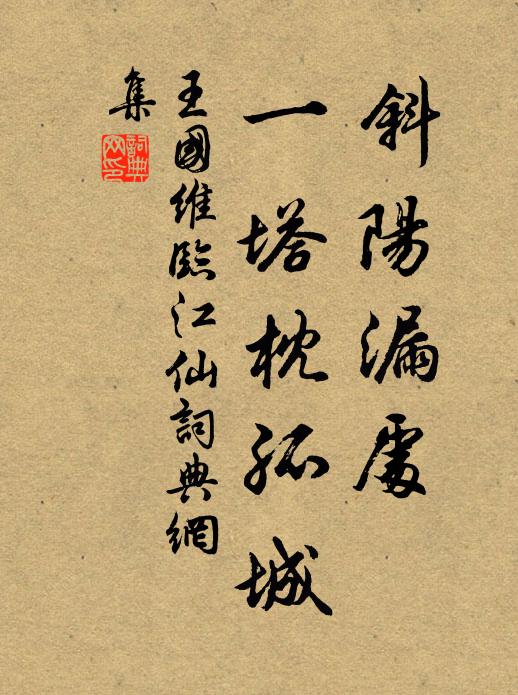 斜陽漏處
一塔枕孤城
王國維臨江仙詞典網
集
詞典
网印